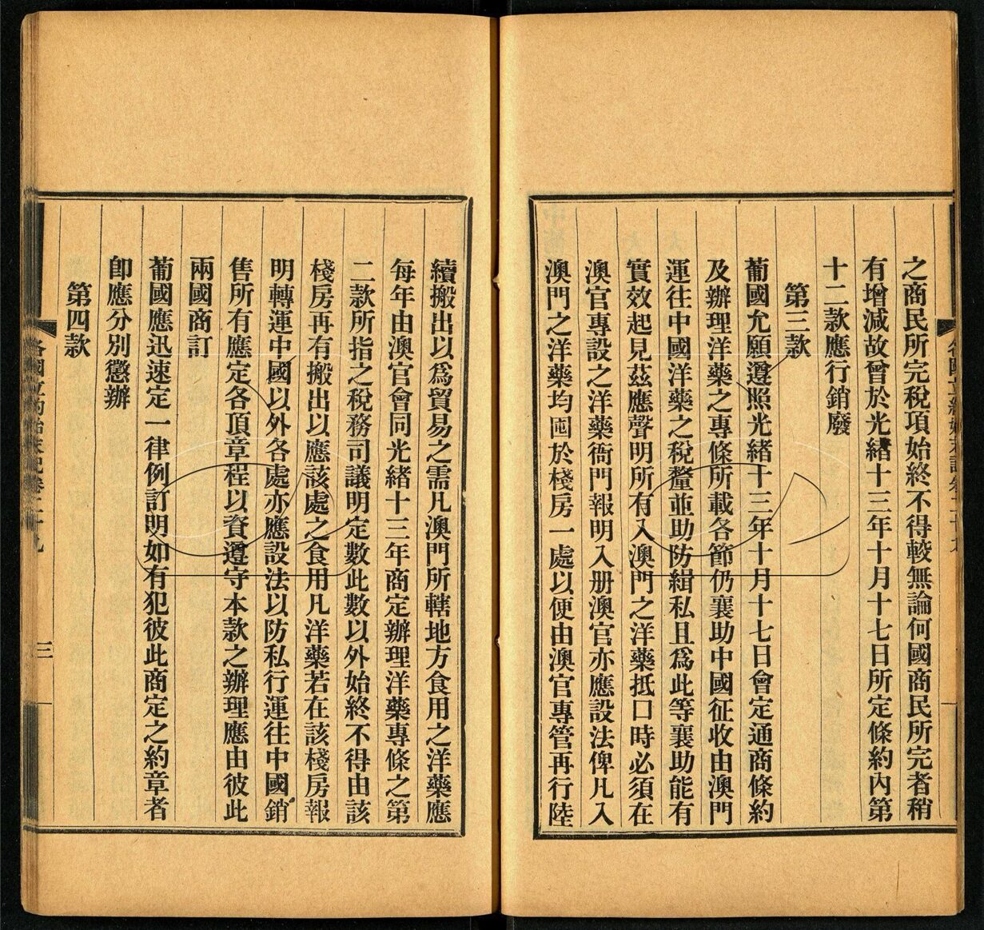 之商民所完稅項始終不得較無論何國商民所完者稍
有增減故曾於光緒十三年十月十七日所定條約內第
十二款應行銷廢
第三款
葡國允願遵照光緒十三年十月十七日會定通商條約
及辦理洋藥之專條所載各節仍襄助中國征收由澳門
運往中國洋藥之稅釐並助防緝私且爲此等襄助能有
實效起見茲應聲明所有入澳門之洋藥抵口時必須在
澳官專設之洋藥衙門報明入册澳官亦應設法俾凡入
澳門之洋藥均囤於棧房一處以便由澳官專管再行陸
續搬出以爲貿易之需凡澳門所轄地方食用之洋藥應
每年由澳官會同光緒十三年商定辦理洋藥專條之第
二款所指之稅務司議明定數此數以外始終不得由該
棧房再有搬出以應該處之食用凡洋藥若在該棧房報
明轉運中國以外各處亦應設法以防私行運往中國銷
售所有應定各項章程以資遵守本款之辦理應由彼此
兩國商訂
葡國應迅速定一律例訂明如有犯彼此商定之約章者
卽應分別懲辦
第四款
各國立約始末記卷二十九
三